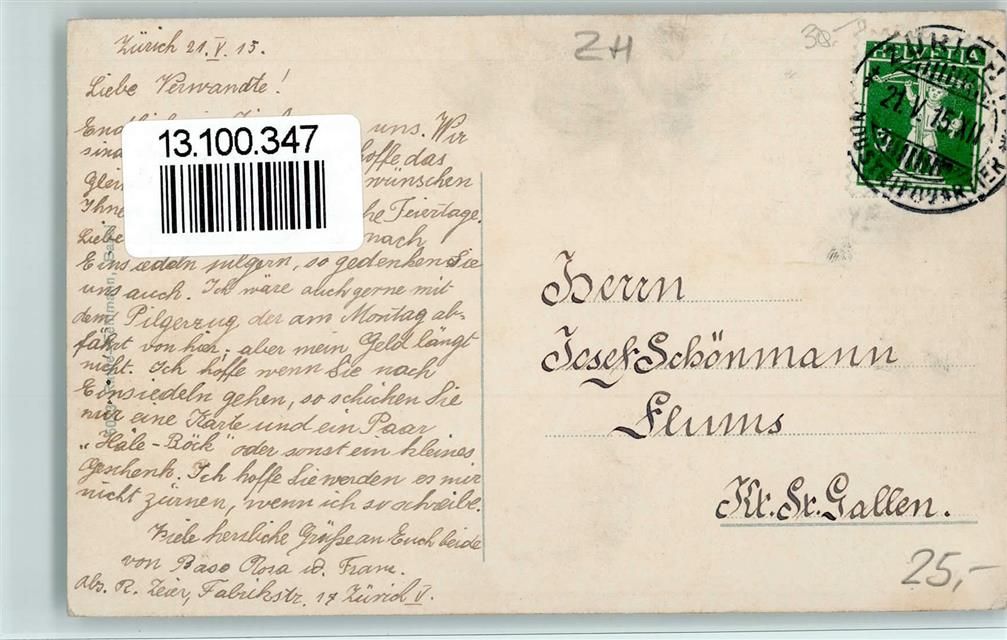 Zürich 21. V. 15.
Liebe Verwandte!
uns. Wir
hoffe das
wünschen
Ihne he Feiertage.
Liebe nach
Einsiedeln pilgern, so gedenken Sie
uns auch. Ich wäre auch gerne mit
dem Pilgerzug der am Montag ab-
fährt von hier, aber mein Geld längt
nicht. Ich hoffe wenn Sie nach
Einsiedeln gehen, so schicken Sie
mir eine Karte und ein Paar
„Häle-Böck" oder sonst ein kleines
Geschenk. Ich hoffe Sie werden es mir
nicht zürnen, wenn ich so schreibe.
Viele herzliche Grüße an Euch beide
von Rosa
abs. R. Zeier, Fabrikstr. 17 Zürich V.
13.100.347
ZH
30.-
HELVETIA
ZÜRICH
21. V. 15. XII
Herrn
Josef Schönmann
Flums
Kt. St. Gallen.
25,-